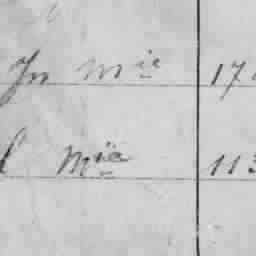 Jn Mie 17
l Mia 113